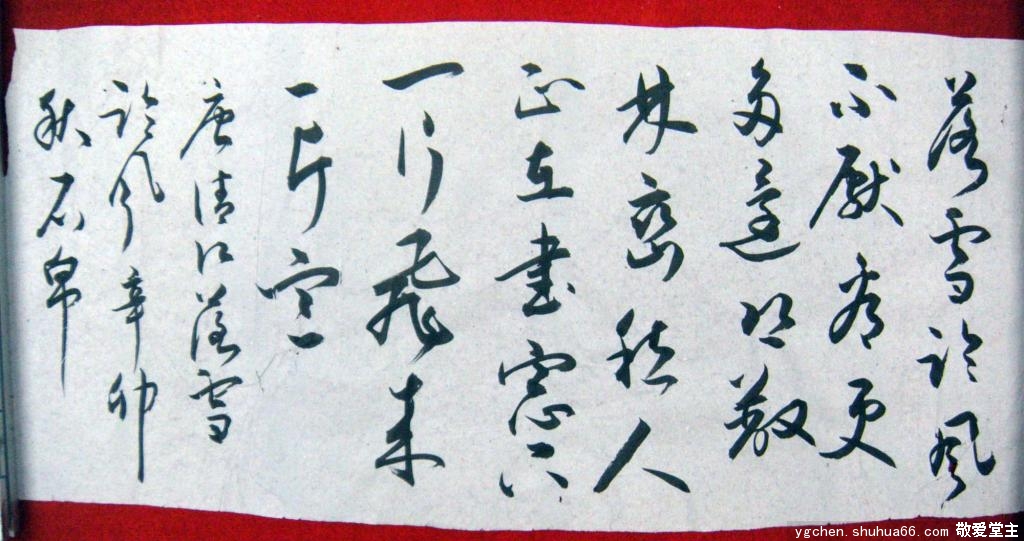 落雪临風
不厭看更
多還恐蔽
林巒愁人
正在書窗下
一片飛来
一片寒
唐清江落雪
临风辛卯
秋石帛
ygchen.shuhua66.com 敬爱堂主